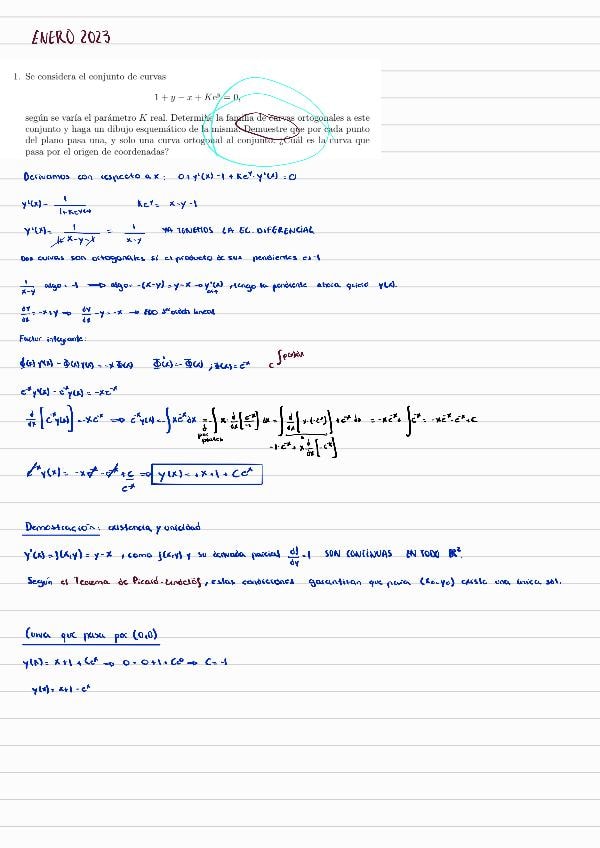 ENERO 2023
1. Se considera el conjunto de curvas
1 + y − x + Ke^y = 0,
según se varía el parámetro K real. Determine la familia de curvas ortogonales a este
conjunto y haga un dibujo esquemático de la misma. Demuestre que por cada punto
del plano pasa una, y solo una curva ortogonal al conjunto. ¿Cuál es la curva que
pasa por el origen de coordenadas?
Derivamos con respecto a x: 0+y'(x)-1+Ke^y·y'(x)=0
y'(x)= 1/(1+Ke^y(x)) Ke^y= x-y-1
y'(x)= 1/(1+x-y-1) = 1/(x-y) YA TENEMOS LA EC. DIFERENCIAL
Dos curvas son ortogonales si el producto de sus pendientes es -1
1/(x-y) · algo = -1 → algo = -(x-y) = y-x → y'(x), tengo la pendiente ahora quiero y(x).
dy/dx = -x+y ⇒ dy/dx - y = -x → EDO 1er orden lineal
Factor integrante:
Φ(x) y'(x) - Φ(x) y(x) = -x Φ(x) Φ'(x) = -Φ(x) ; Φ(x) = e^-x e^∫p(x)dx
e^-x y'(x) - e^-x y(x) = -x e^-x
d/dx [e^-x y(x)] = -x e^-x ⇒ e^-x y(x) = -∫x e^-x dx = = -x e^-x - e^-x + C
por partes
y(x) = x + 1 + C e^x
Demostración: existencia y unicidad
y'(x) = f(x,y) = y-x , como f(x,y) y su derivada parcial df/dy = 1 SON CONTINUAS EN TODO R².
Según el Teorema de Picard-Lindelöf, estas condiciones garantizan que para (x₀,y₀) existe una única sol.
Curva que pasa por (0,0)
y(x) = x+1 + Ce^x → 0 = 0+1+Ce^0 → C = -1
y(x) = x+1 - e^x